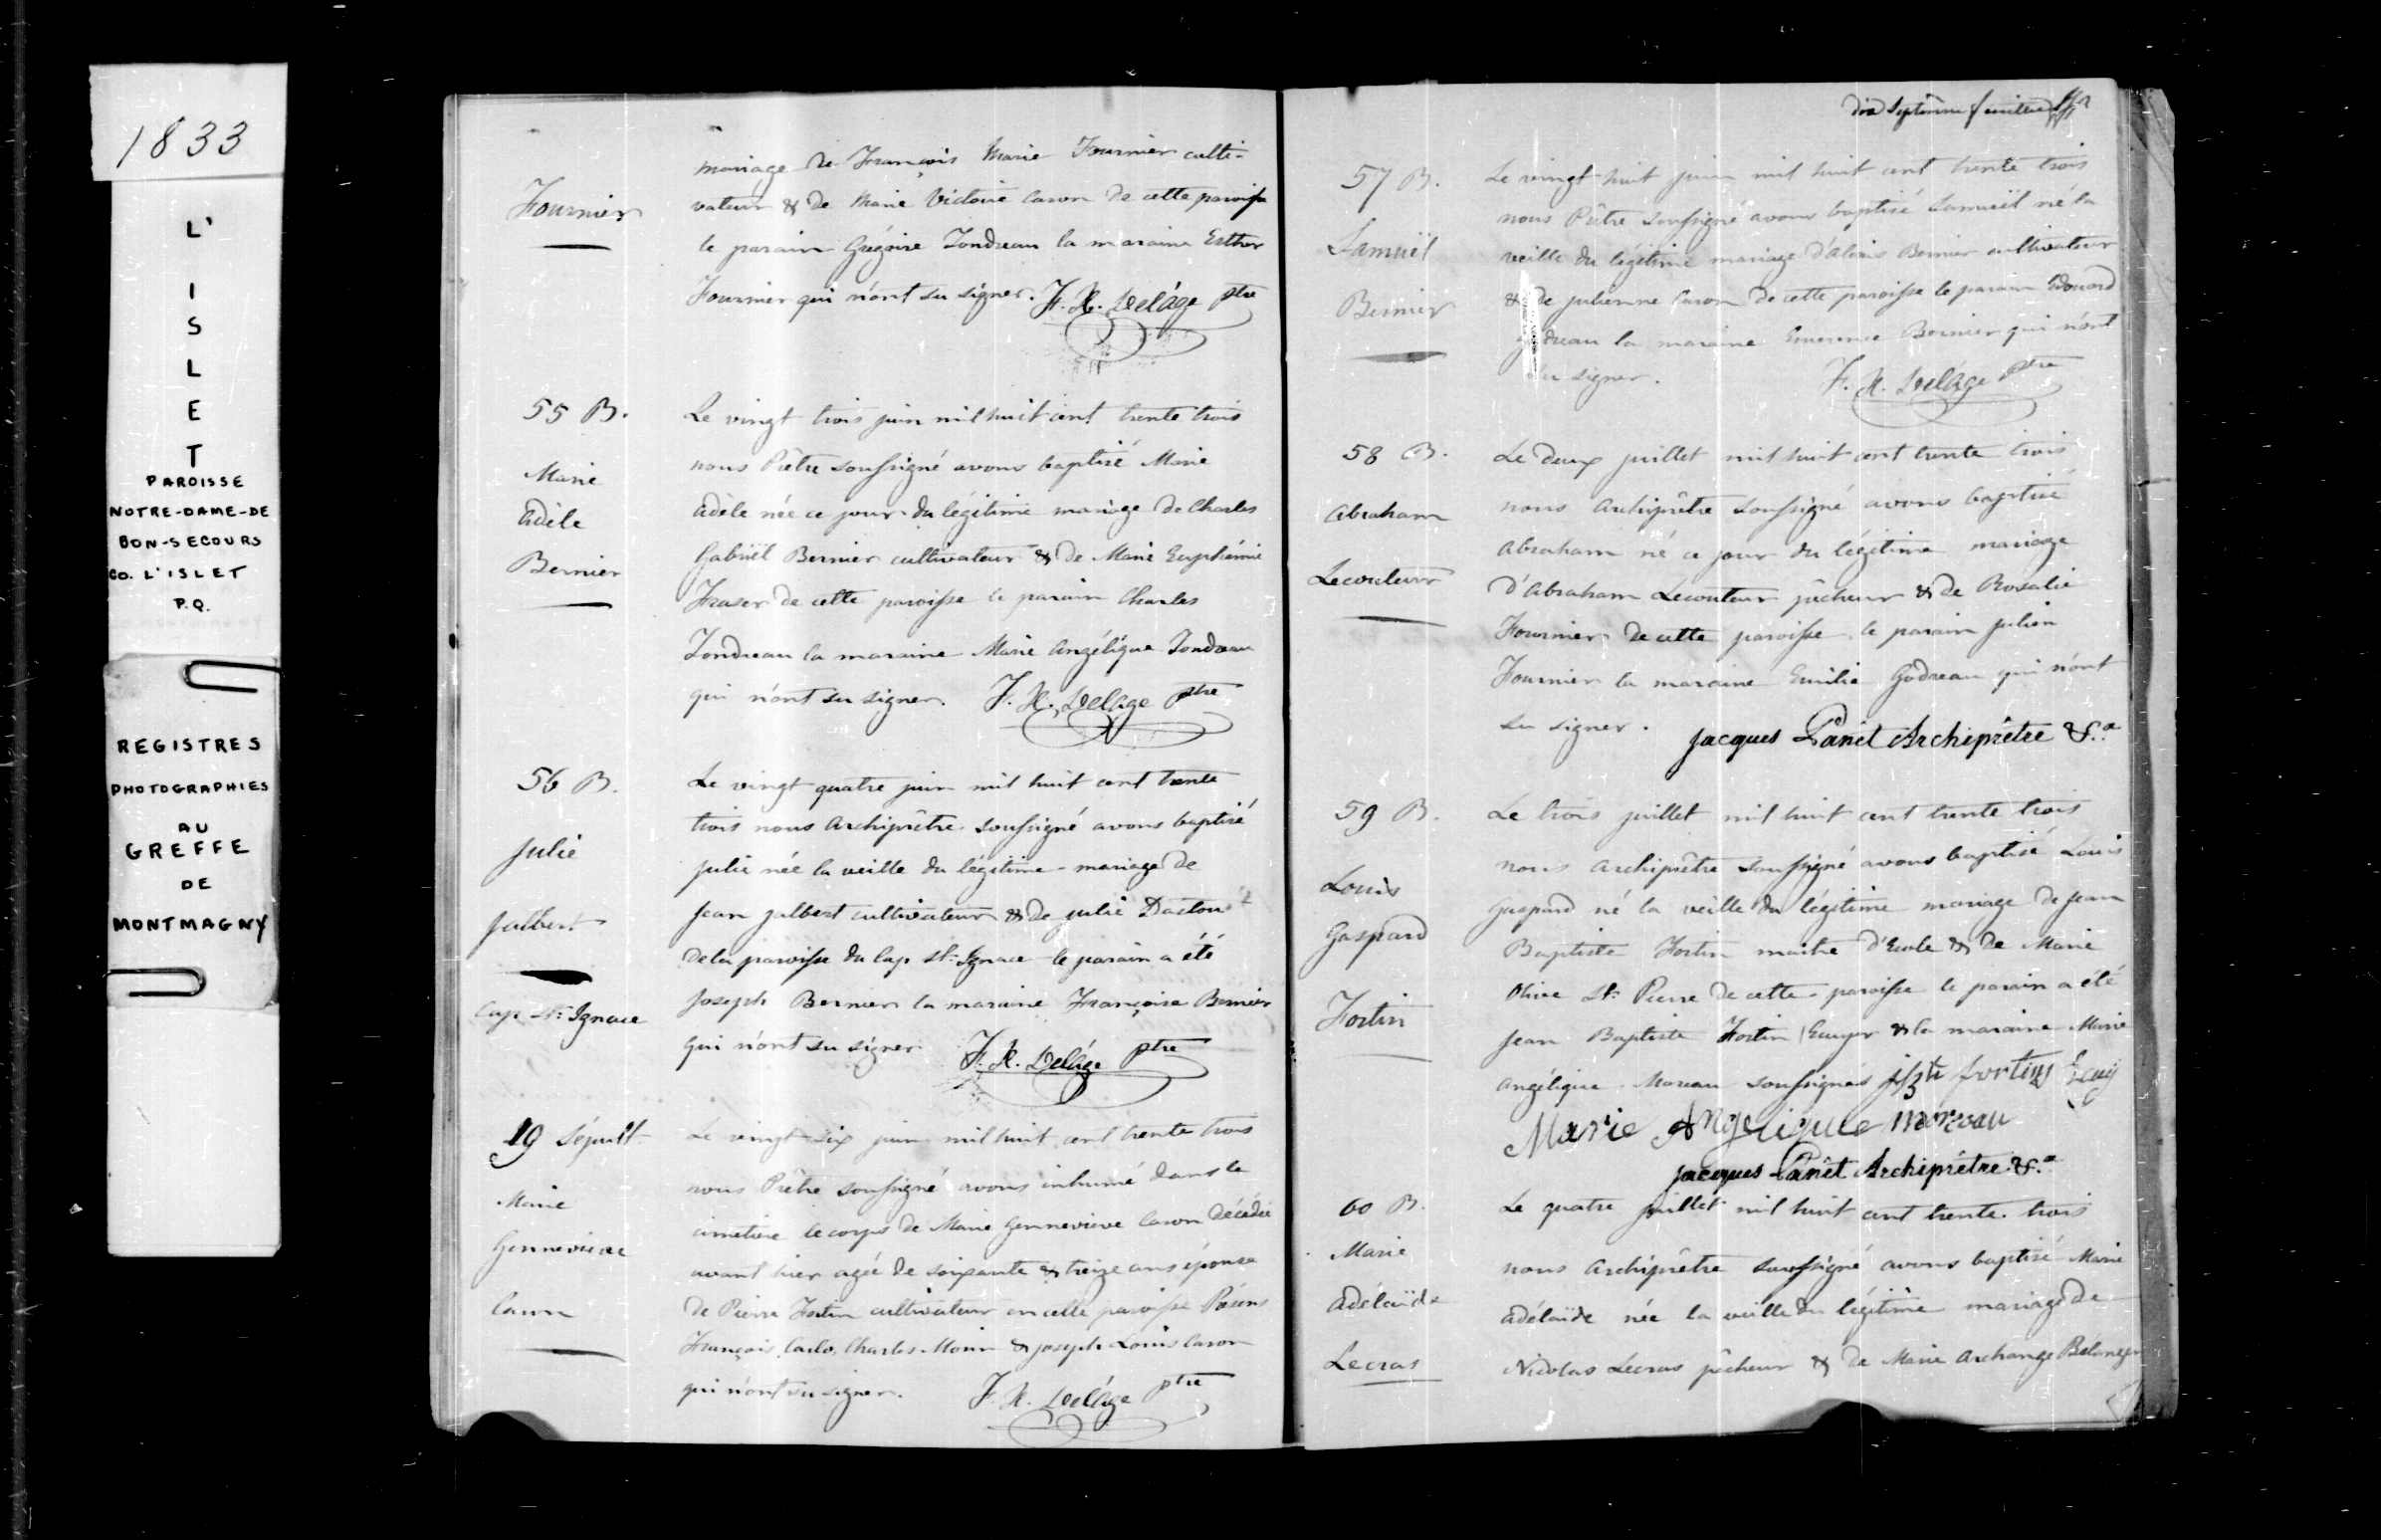 1833
L'
I
S
L
E
T
PAROISSE
NOTRE-DAME-DE
BON-SECOURS
CO. L'ISLET
P.Q.
REGISTRES
PHOTOGRAPHIES
AU
GREFFE
DE
MONTMAGNY
Fournier
mariage de François Marie Fournier culti-
vateur & de Marie Victoire Caron de cette paroisse
le parain Grégoire Tondreau la maraine Esther
Fournier qui n'ont su signer. F. X. Delâge ptre
55 B.
Marie
Adèle
Bernier
Le vingt trois juin mil huit cent trente trois
nous Prêtre soussigné avons baptisé Marie
Adèle née ce jour du légitime mariage de Charles
Gabriël Bernier cultivateur & de Marie Euphémie
Fraser de cette paroisse le parain Charles
Tondreau la maraine Marie Angélique Tondreau
qui n'ont su signer. F. X. Delâge ptre
56 B.
Julie
Jalbert
Cap St. Ignace
Le vingt quatre juin mil huit cent trente
trois nous Archiprêtre soussigné avons baptisé
Julie née la veille du légitime mariage de
Jean Jalbert cultivateur & de Julie
de la paroisse du Cap St. Ignace le parain a été
Joseph Bernier la maraine Françoise Bernier
qui n'ont su signer F. X. Delâge ptre
19 Sépult.
Marie
Gennevieve
Caron
Le vingt six juin mil huit cent trente trois
nous Prêtre soussigné avons inhumé dans le
cimetière le corps de Marie Gennevieve Caron décédée
avant hier agée de soixante & treize ans épouse
de Pierre Fortin cultivateur en cette paroisse Présens
François Charles Morin & Joseph Louis Caron
qui n'ont su signer. F. X. Delâge ptre
dix septième feuillet
57 B.
Samuël
Bernier
Le vingt huit juin mil huit cent trente trois
nous Prêtre soussigné avons baptisé Samuël né la
veille du légitime mariage d'Alexis Bernier cultivateur
& de Julienne Caron de cette paroisse le parain Edouard
la maraine Bernier qui n'ont
su signer. F. X. Delâge ptre
58 B.
Abraham
Lecouteur
Le deux juillet mil huit cent trente trois
nous Archiprêtre soussigné avons baptisé
Abraham né ce jour du légitime mariage
d'Abraham Lecouteur pêcheur & de Rosalie
Fournier de cette paroisse le parain Julien
Fournier la maraine Emilie Godreau qui n'ont
su signer. Jacques Panet Archiprêtre &.a
59 B.
Louis
Gaspard
Fortin
Le trois juillet mil huit cent trente trois
nous Archiprêtre soussigné avons baptisé Louis
Gaspard né la veille du légitime mariage de Jean
Baptiste Fortin maître d'Ecole & de Marie
Olive St. Pierre de cette paroisse le parain a été
Jean Baptiste Fortin Ecuyer & la maraine Marie
Angélique Moreau soussignés fortin
Marie Angelique moreau
Jacques Panet Archiprêtre &.a
60 B.
Marie
Adélaïde
Lecras
Le quatre juillet mil huit cent trente trois
nous Archiprêtre soussigné avons baptisé Marie
Adélaïde née la veille du légitime mariage de
Nicolas Lecras pêcheur & de Marie Archange Bélanger